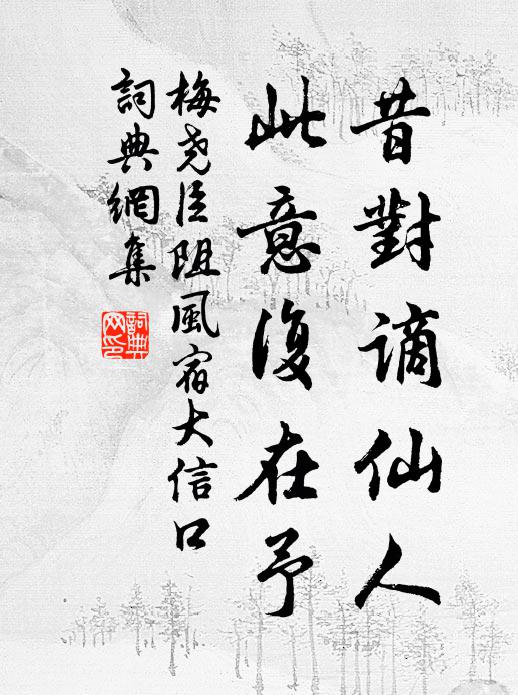 昔對謫仙人
此意復在予
梅尧臣阻風宿大信口
詞典網集
詞典网印